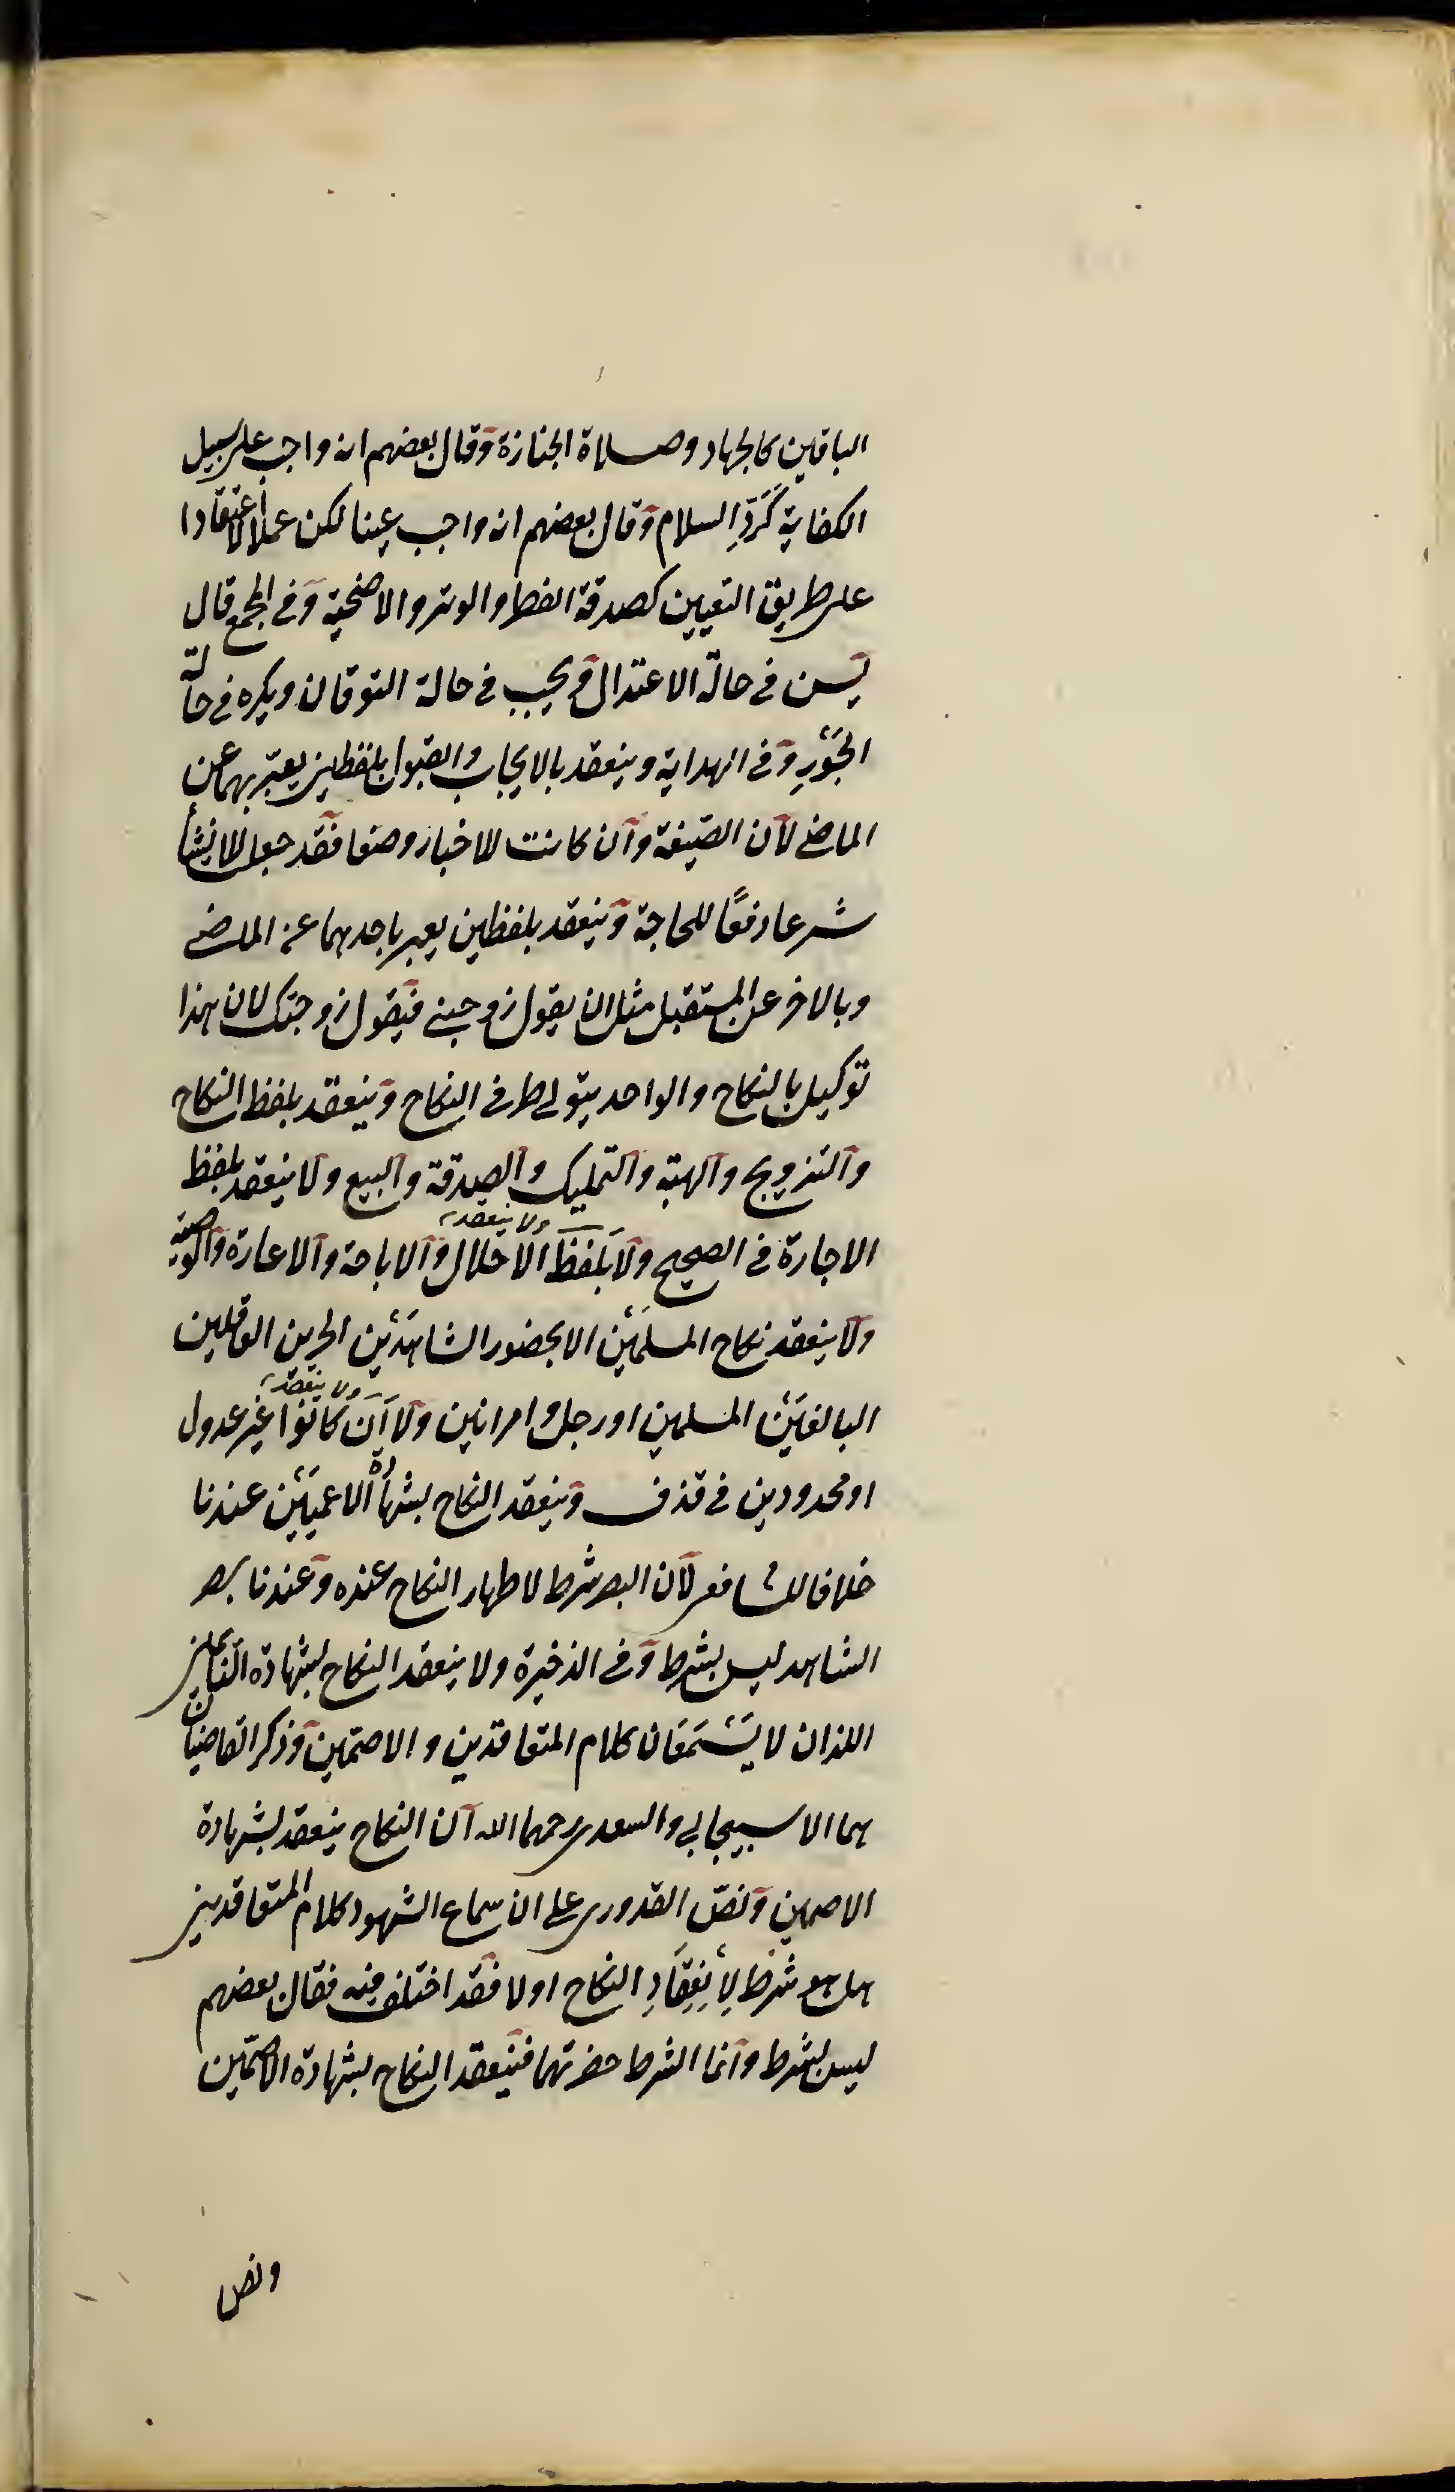 الباقين كالجهاد وصلاة الجنازة وقال بعضهم انه واجب على سبيل
الكفاية كَرَدِّ السلام وقال بعضهم انه واجب عينا لكن عملا لا اعتقادا
على طريق التعيين كصدقة الفطر والوتر والاضحية وفى المجمع قال
يسن فى حالة الاعتدال ويجب فى حالة التوقان ويكره فى حالة
الجَوْرِ وفى الهداية وينعقد بالايجاب والقبول بلفظين يعبّر بهما عن
الماضى لان الصّيغة وان كانت للاخبار وضعا فقد جعل للانشأ
شرعا دفعًا للحاجة وينعقد بلفظين يعبر باحدهما عن الماضى
وبالاخر عن المستقبل مثل ان يقول زوجينى فيقول زوجتك لان هذا
توكيل بالنكاح والواحد يتولى طرفى النكاح وينعقد بلفظ النكاح
والتزويج والهبة والتمليك والصدقة والبيع ولا ينعقد بلفظ
ولا ينعقد
الاجارة فى الصحيح ولا بلفظ الاحلال والاباحة والاعارة والوصية
ولا ينعقد نكاح المسلمَيْن الا بحضور الشاهدَيْن الحرين العاقلين
ولا ينعقد
البالغَيْن المسلمين او رجل وامراتين ولا اَن كانوا غير عدول
او محدودين فى قذف وينعقد النكاح بشهادة الاعميَيْن عندنا
خلافا للشافعى لان البصر شرط لاظهار النكاح عنده وعندنا بصر
الشاهد ليس بشرط وفى الذخيرة ولا ينعقد النكاح بشهادة النائمين
اللذان لا يَسْمَعَان كلام المتعاقدين والاصمّين وذكر القاضيان
هما الاسبيجابى والسعدى رحمهما الله ان النكاح ينعقد بشهادة
الاصمين ونصّ القدورى على ان سماع الشهود كلام المتعاقدين
هل هو شرط لِاْنعِقَادِ النكاح اولا فقد اختلف فيه فقال بعضهم
ليس بشرط وانما الشرط حضرتهما فينعقد النكاح بشهادة الاصمّين
ونص